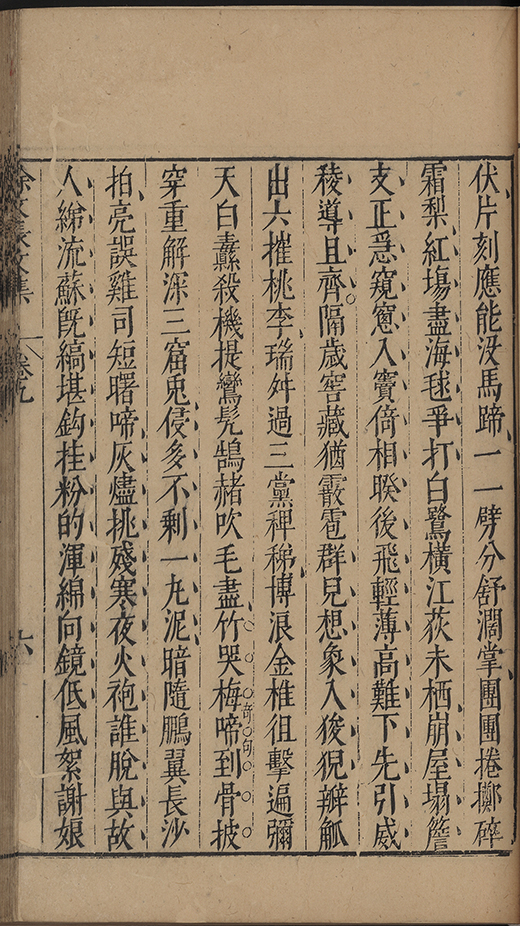 伏片刻應能没馬蹄一一劈分舒濶掌團團捲擲碎
霜梨紅塲盡海毬爭打白鷺橫江荻未栖崩屋塌簷
支正急窺窓入竇倚相暌後飛輕薄高難下先引威
稜導且齊隔歲窖藏猶霰雹群兒想象入狻猊辦觚
出六摧桃李瑞舛過三黨稗稊博浪金椎徂擊遍彌
天白纛殺機提鸞髠鵠赭吹毛盡竹哭梅啼到骨披
奇句
穿重解深三窟兎侵多不剩一丸泥暗隨鵬翼長沙
拍亮誤雞司短曙啼灰燼挑殘寒夜火袍誰脫與故
人綈流蘇旣縞堪鈎挂粉的渾綿向鏡低風絮謝娘
徐文長文集
卷九
六